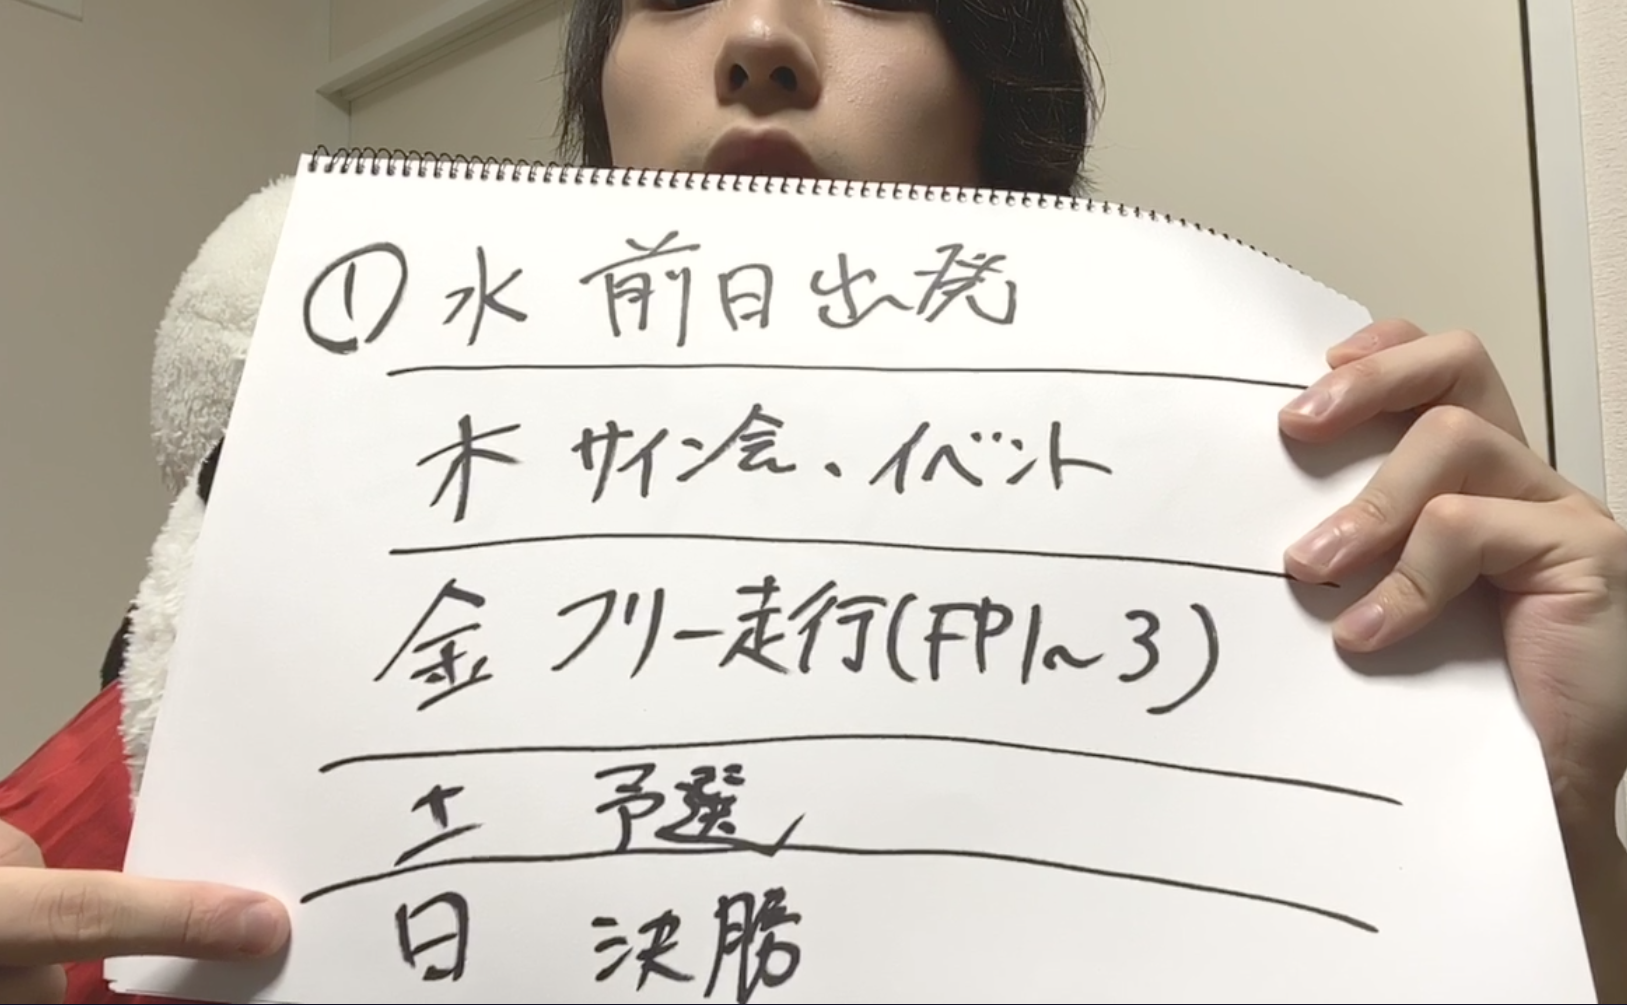 ① 水 前日出発
木 サイン会、イベント
金 フリー走行(FP1~3)
土 予選
日 決勝